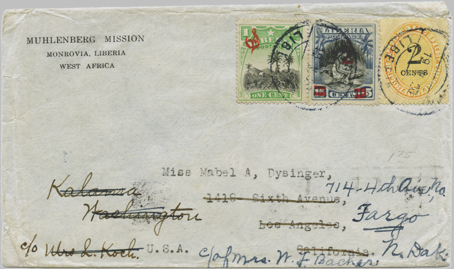 MUHLENBERG MISSION
MONROVIA, LIBERIA
WEST AFRICA
1 1
ONE CENT
LIBERIA
CENTS
2
CENTS
LIBE
Miss Mabel A, Dysinger,
1419 Sixth Avenue,
Los Angeles,
California.
U.S.A.
Kalama
Washington
c/o Mrs L. Koch.
714-4th Ave No,
Fargo
N. Dak.
c/o Mrs. W. F. Bacher
175